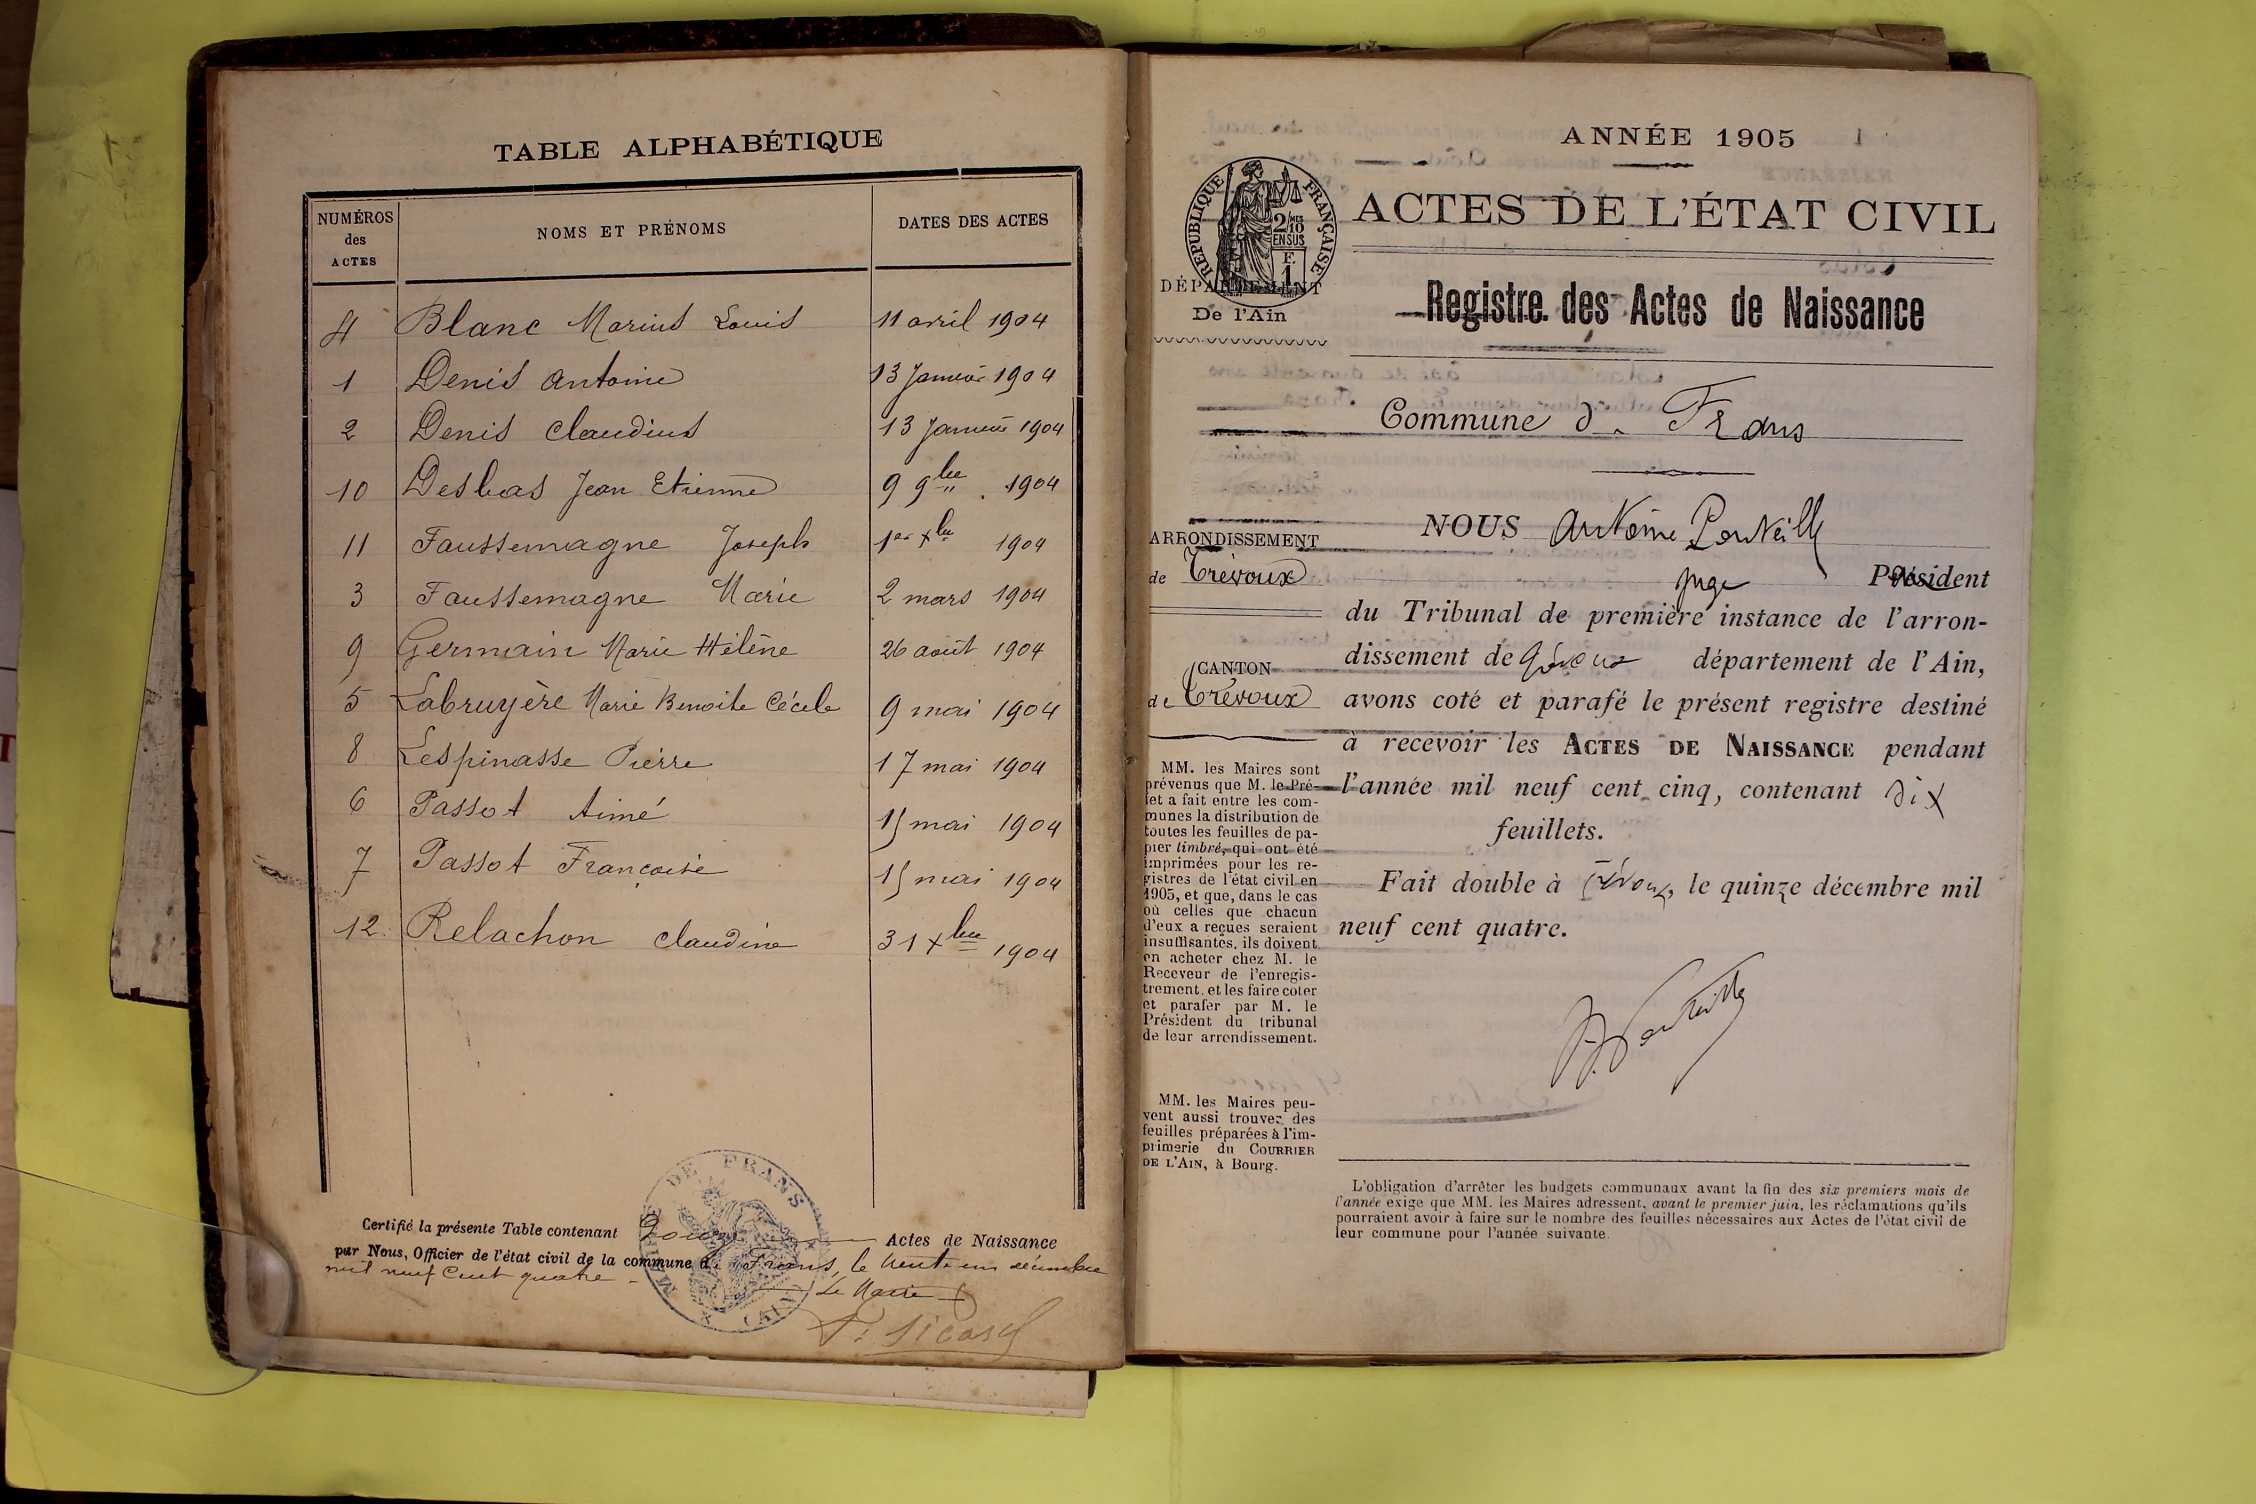 TABLE ALPHABÉTIQUE
NUMÉROS des ACTES NOMS ET PRÉNOMS DATES DES ACTES
4 Blanc Marius Louis 11 avril 1904
1 Denis Antoine 13 Janvier 1904
2 Denis Claudius 13 Janvier 1904
10 Desbas Jean Etienne 9 9bre 1904
11 Faussemagne Joseph 1er Xbre 1904
3 Faussemagne Marie 2 mars 1904
9 Germain Marie Hélène 26 août 1904
5 Labruyère Marie Benoite Cécile 9 mai 1904
8 Lespinasse Pierre 17 mai 1904
6 Passot Aimé 15 mai 1904
7 Passot Françoise 15 mai 1904
12 Relachon Claudine 31 Xbre 1904
Certifié la présente Table contenant Douze Actes de Naissance
par Nous, Officier de l'état civil de la commune de Frans, le trente un décembre
mil neuf cent quatre
Le Maire
P. Sicard
MAIRIE DE FRANS
(AIN)
ANNÉE 1905
1
RÉPUBLIQUE FRANÇAISE
2/10 MES
EN SUS
F.
1
ACTES DE L'ÉTAT CIVIL
DÉPARTEMENT
De l'Ain
Registre des Actes de Naissance
Commune d. Frans
ARRONDISSEMENT
de Trévoux
CANTON
de Trévoux
MM. les Maires sont
prévenus que M. le Pré-
fet a fait entre les com-
munes la distribution de
toutes les feuilles de pa-
pier timbré, qui ont été
imprimées pour les re-
gistres de l'état civil en
1905, et que, dans le cas
où celles que chacun
d'eux a reçues seraient
insuffisantes, ils doivent
en acheter chez M. le
Receveur de l'enregis-
trement, et les faire coter
et parafer par M. le
Président du tribunal
de leur arrondissement.
MM. les Maires peu-
vent aussi trouver des
feuilles préparées à l'im-
primerie du COURRIER
DE L'AIN, à Bourg.
NOUS Antoine Ponteille
juge Président
du Tribunal de première instance de l'arron-
dissement de Trévoux département de l'Ain,
avons coté et parafé le présent registre destiné
à recevoir les ACTES DE NAISSANCE pendant
l'année mil neuf cent cinq, contenant dix
feuillets.
Fait double à Trévoux, le quinze décembre mil
neuf cent quatre.
A. Ponteille
L'obligation d'arrêter les budgets communaux avant la fin des six premiers mois de
l'année exige que MM. les Maires adressent, avant le premier juin, les réclamations qu'ils
pourraient avoir à faire sur le nombre des feuilles nécessaires aux Actes de l'état civil de
leur commune pour l'année suivante.